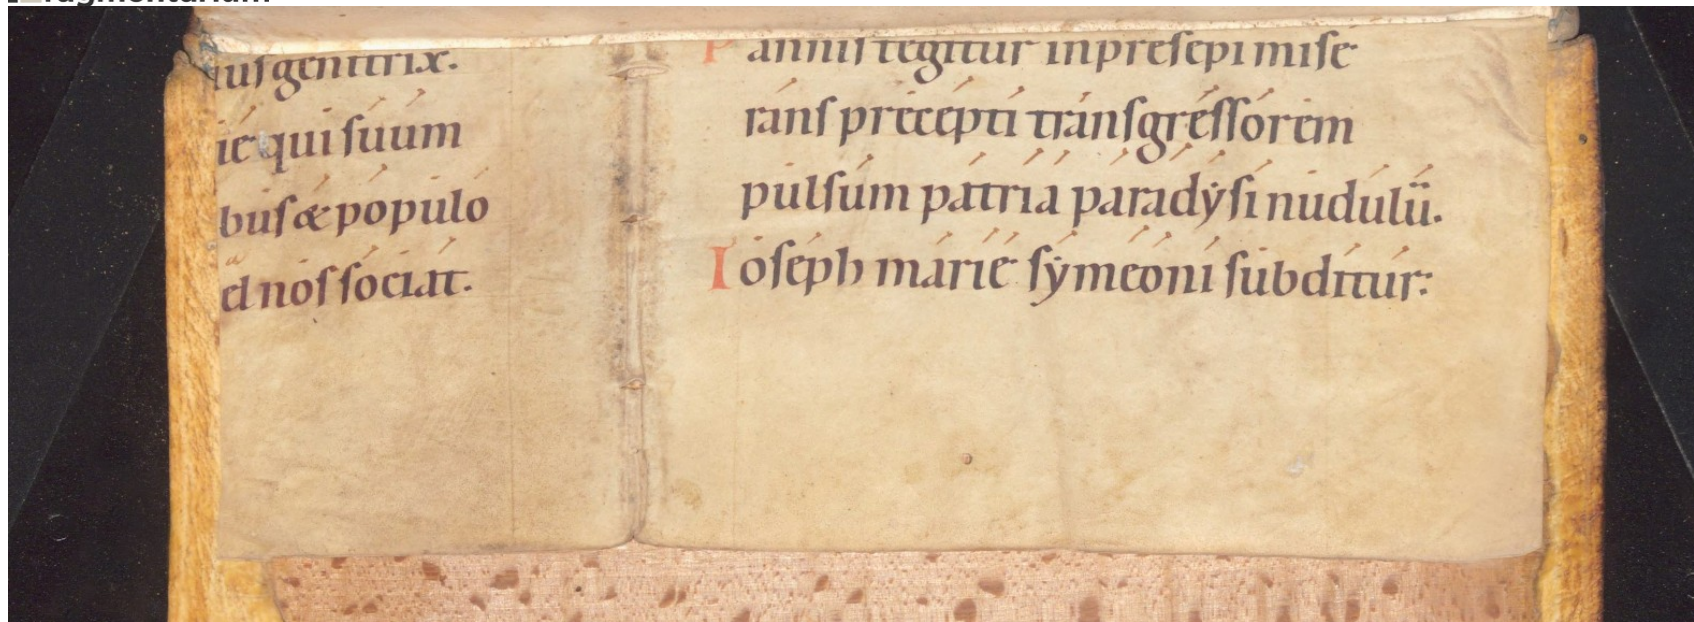 iusgenitrix.
ie qui suum
bus & populo
el nos sociat.
Pannis tegitur inpresepi mise
rans precepti transgressorem
pulsum patria paradysi nudulū.
Ioseph marie symeoni subditur: